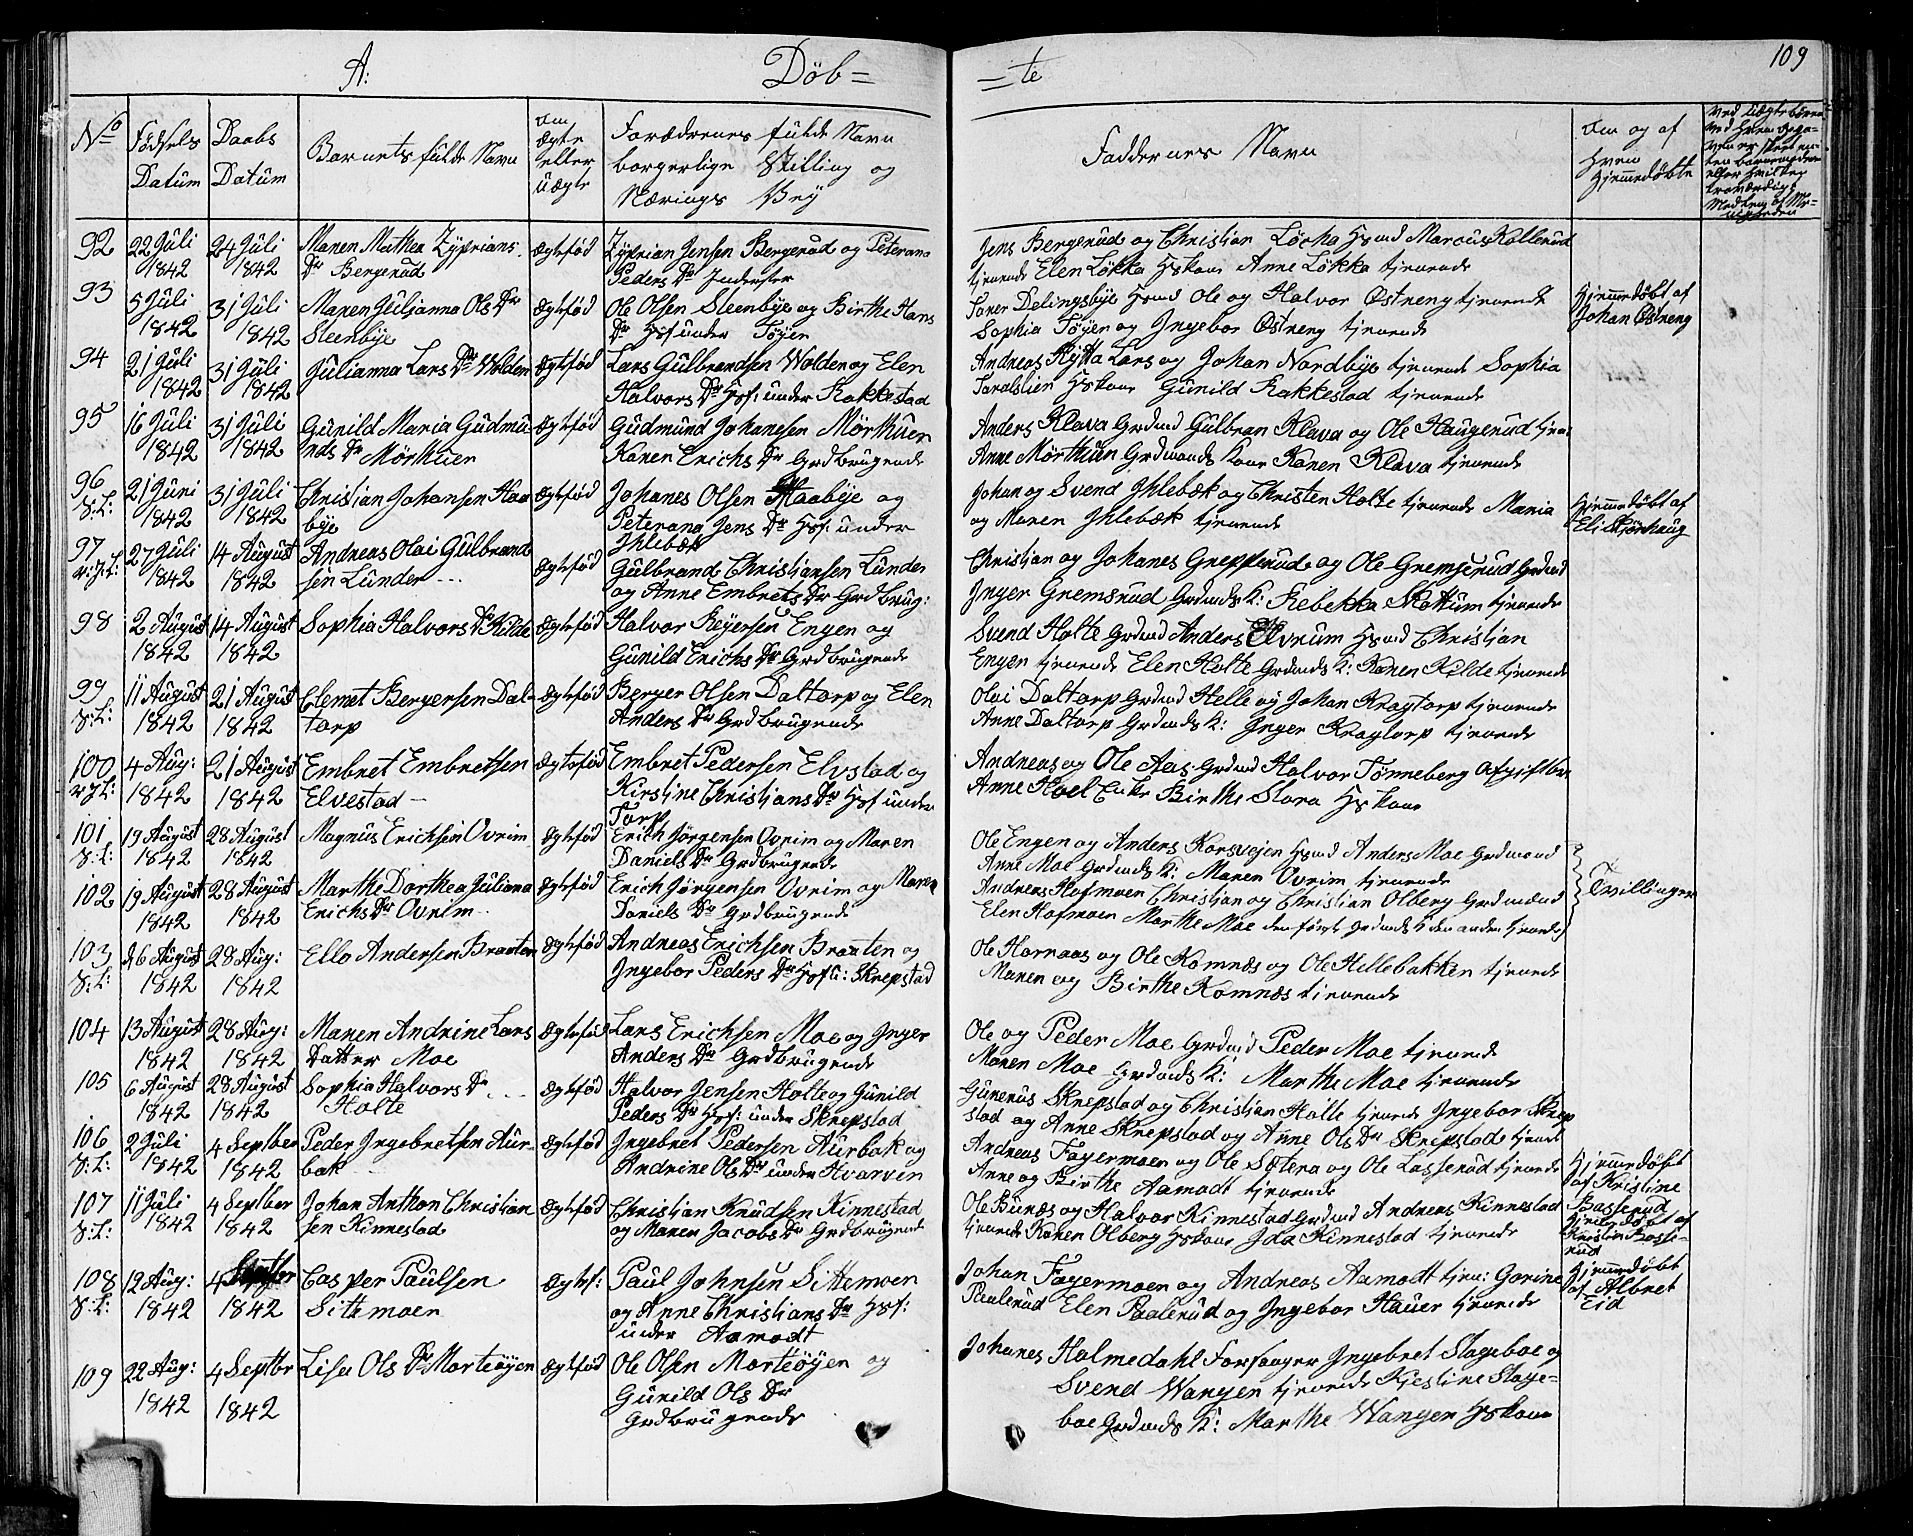 109
A: Döb= =te
No
Födsels Datüm
Daabs Datüm
Barnets fulde Navn
om ægte eller üægte
Forældrenes fulde Navn
borgerlige Stilling og
Nærings Vey
Faddernes Navn
om og af
Hven
Hjemmedöbte
92 22 Jüli 1842 24 Jüli 1842
Maren Mathea Zyprians
Dr Bergerüd
Ægtefød
Zyprian Jensen Bergerüd og Peterana
Peders Dr Inderster
Jens Bergerüd og Christian Løcha Hsmd Marcus Kallerud
tjenende Elen Løkka Hskone Anne Løkka tjenende
93 5 Jüli 1842 31 Jüli 1842
Maren Jüljanna Ols Dr
Steenbye
Ægtefød
Ole Olsen Steenbye og Birthe Hans
Dr Hsf under Tøyer
Torer Delingsbye Hsmd Ole og Halvor Østreng tjenende
Sophia Tøyer og Ingebor Østreng tjenende
Hjemmedöbt af
Johan Østreng
94 21 Jüli 1842 31 Jüli 1842
Julianna Lars Dr Wolden
Ægtefød
Lars Gülbrandsen Wolden og Elen
Halvors Dr Hsf: under Rakkestad
Andreas Rytta Lars og Johan Nordbye tjenende Sophia
Taralslien Hskone Günild Rakkestad tjenende
95 16 Jüli 1842 31 Jüli 1842
Günild Maria Güdmü
nds Dr Mörkuer
Ægtefød
Güdmünd Johanesen Mörkuer
Karen Erichs Dr Grdbrugende
Anders Klava Grdmd Gülbran Klava og Ole Haugerüd tjene
Anne Mörkuen Grdmands kone Karen Klava tjenende
96 S:L: 21 Juni 1842 31 Jüli 1842
Christian Johansen Haa
bye
Ægtefød
Johanes Olsen Haabye og
Peterana Jens Dr Hsf: under
Ihlebæk
Johan og Svend Ihlebæk og Christen Holte tjenende Maria
og Maren Ihlebæk tjenende
Hjemmedöbt af
Eli Skjörhaüg
97 27 Jüli 1842 14 August 1842
Andreas Olai Gülbrand
sen Lünder
Ægtefød
Gülbrand Christiansen Lünder
og Anne Embrets Dr Grdbrug:
Christian og Johanes Grepperud og Ole Gremserüd Grdmd
Inger Gremsrüd Grdmds K: Rebekka Skottüm tjenende
98 2 August 1842 14 August 1842
Sophia Halvors Dr Kilde
Ægtefød
Halvor Reyersen Engen og
Günild Erichs Dr Grdbrügende
Svend Holte Grdmd Anders Elvrum Hsmd Christian
Engen tjenende Elen Holte Grdmds K: Karen Kilde tjenende
99 S:L: 11 August 1842 21 August 1842
Clemet Bergersen Dal
torp
Ægtefød
Berger Olsen Daltorp og Elen
Anders Dr Grdbrugende
Olai Daltorp Grdmd Helle og Johan Kragtorp tjenende
Anne Daltorp Grdmds K: Inger Kragtorp tjenende
100 4 Aug: 1842 21 August 1842
Embret Embretsen
Elvestad
Ægtefød
Embret Pedersen Elvstad og
Kirstine Christians Dr Hsf under
Torp
Andreas og Ole Aas Grdmd Halvor Tønneberg
Anne Hoel Enke Birthe Slora Hskone
101 S:L: 19 August 1842 28 August 1842
Magnus Erichsen Ovrim
Ægtefød
Erich Jørgensen Ovrim og Maren
Daniels Dr Grdbrugende
Ole Engen og Anders Korsvejen Hsmd Anders Moe Grdmand
Anne Moe Grdmds K: Maren Ovrim tjenende
102 19 August 1842 28 August 1842
Marthe Dorthea Juliana
Erichs Dr Ovrim
Ægtefød
Erich Jörgensen Ovrim og Maren
Daniels Dr Grdbrugende
Andreas Hofmoen Christian og Christian Olberg Grdmænd
Elen Hofmoen Marthe Moe den først Grdmds K den anden tjenende
Tvillinger
103 S:L: 26 August 1842 28 Aug: 1842
Ello Andersen Braaten
Ægtefød
Andreas Erichsen Braaten og
Ingebor Peders Dr Hsf ü: Skrepstad
Ole Hornaas og Ole Komnæs og Ole Hellebakken tjenende
Maren og Birthe Komnæs tjenende
104 13 August 1842 28 Aug: 1842
Maren Andrine Lars
Datter Moe
Ægtefød
Lars Erichsen Moe og Inger
Anders Dr Grdbrugende
Ole og Peder Moe Grdmd Peder Moe tjenende
Maren Moe Grdmands K: Marthe Moe tjenende
105 6 August 1842 28 August 1842
Sophia Halvors Dr
Holte
Ægtefød
Halvor Jensen Holte og Günild
Peders Dr Hsf: under Skrepstad
Günerüs Skrepstad og Christian Holte tjenende Ingebor Skrep
stad og Anne Skrepstad og Anne Ols Dr Skrepstad tjenende
106 S:L: 2 Jüli 1842 4 Septber 1842
Peder Ingebretsen Aur
bak
Ægtefød
Ingebret Pedersen Aurbak og
Andrine Ols Dr under Hvarven
Andreas Fagermoen og Ole Sætera og Ole Lasserüd tjenende
Anne og Birthe Aamodt tjenende
Hjemmedöbt
af Kristine
Basserüd
107 S:L: 11 Jüli 1842 4 Septber 1842
Johan Anthon Christian
sen Kinnestad
Ægtefød
Christian Knüdsen Kinnestad
og Maren Jacobs Dr Grdbrügende
Ole Bunæs og Halvor Kinnestad Grdmd Andreas Kinnestad
tjenende Karen Olberg Hskone Ida Kinnestad tjenende
Hjemedöbt af
Kirstin Basse-
rüd
108 S:L: 12 Aug: 1842 4 Septber 1842
Casper Paulsen
Sittemoen
Ægtef:
Paul Johnsen Sittemoen
og Anne Christians Dr Hsf:
under Aamodt
Johan Fagermoen og Andreas Aamodt tjen: Gorine
Paulerüd Elen Paulerüd og Ingebor Haüer tjenende
Hjemmedöbt
af Albret
Eid
109 22 Aug: 1842 4 Septbr 1842
Lisa Ols Dr Morteöyen
Ægtefød
Ole Olsen Morteöyen og
Günild Ols Dr
Grdbrugende
Johanes Holmedahl Forsanger Ingebret Slageboe og
Svend Wangen tjenende Kjestine Slage=
boe Grdmds K: Marthe Wangen Hskone